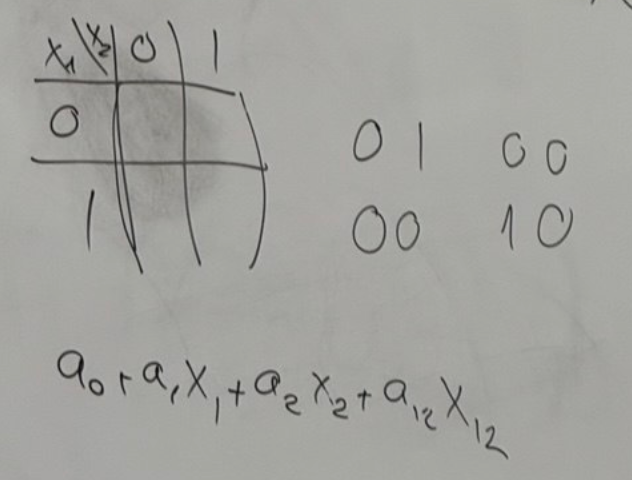 x₁\x₂ 0 1
0
1
0 1 0 0
0 0 1 0
a₀+a₁x₁+a₂x₂+a₁₂x₁₂